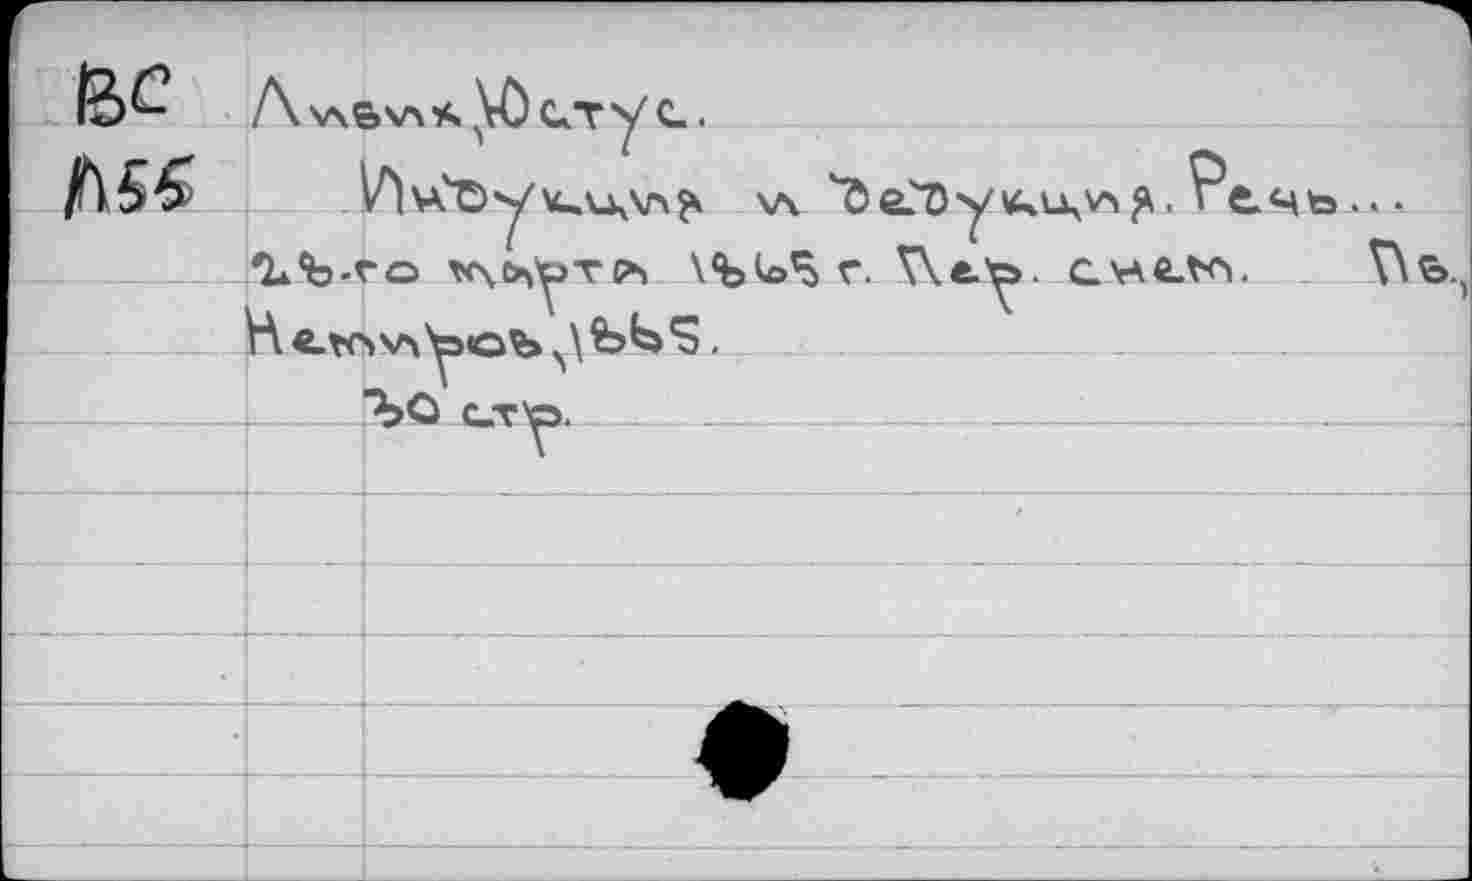 ВС Либих, Юстус.
Л55 Индукция и дедукция. Речь...
23-го марта 1865 г. Пер. с нем. Пб.,
Немиров, 1865.
30 стр.